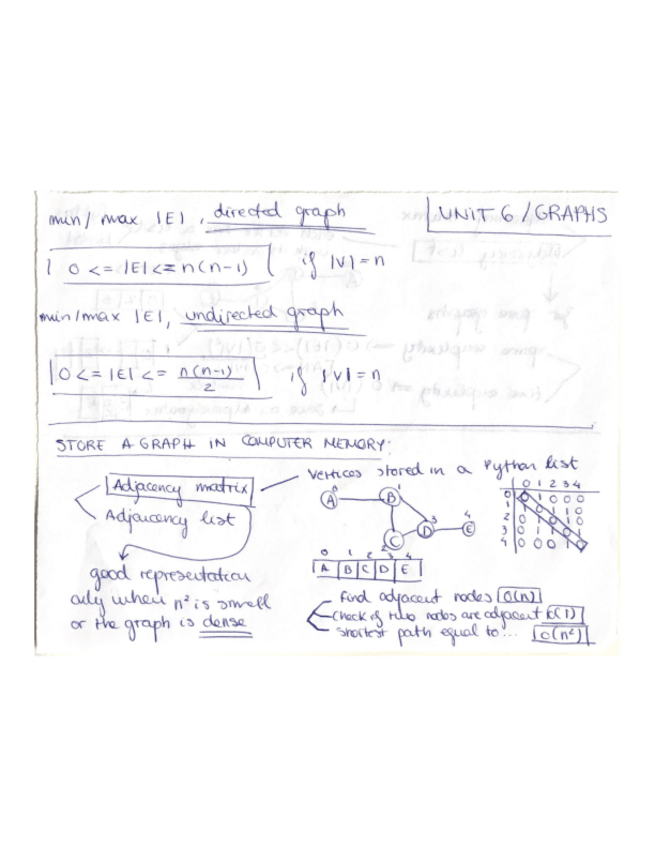 UNIT 6 / GRAPHS
min / max |E|, directed graph
0 <= |E| <= n(n-1) if |V| = n
min / max |E|, undirected graph
0 <= |E| <= n(n-1)/2 if |V| = n
STORE A GRAPH IN COMPUTER MEMORY:
Adjacency matrix
Adjacency list
good representation
only when n² is small
or the graph is dense
vertices stored in a Python list
0 A
1 B
2 C
3 D
4 E
0 1 2 3 4
A B C D E
0 1 2 3 4
0 0 1 0 0 0
1
2
3
4 0 0 0 1 0
find adjacent nodes O(n)
check if two nodes are adjacent O(1)
shortest path equal to... O(n²)